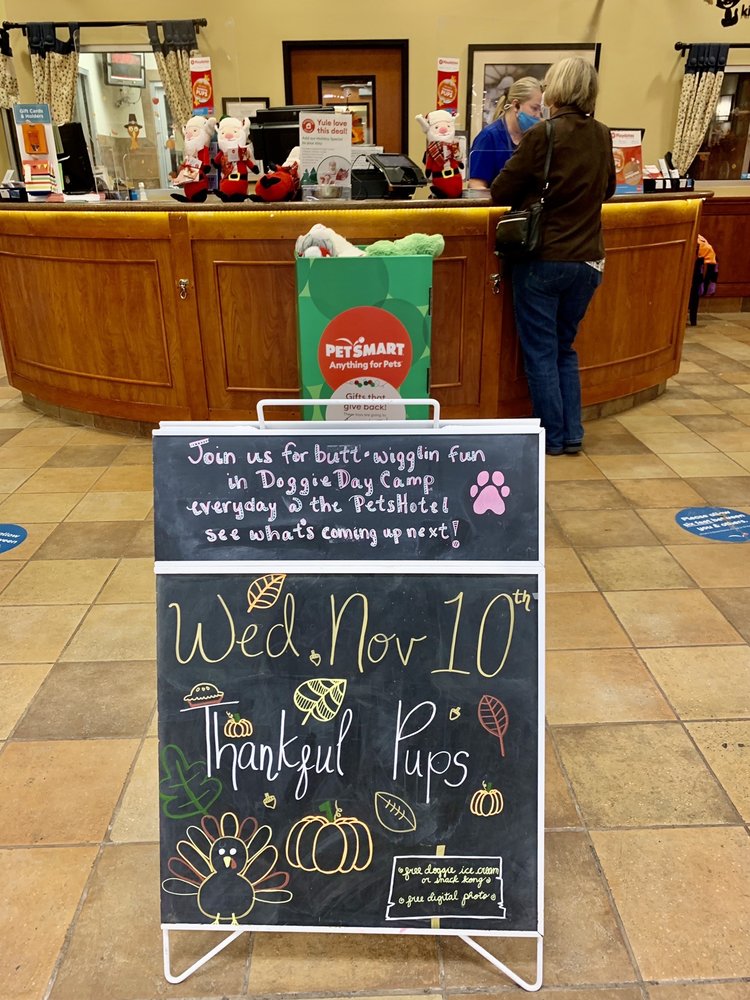 Gift Cards
& Holders
Yule love
this deal!
PETSMART
Anything for Pets
Gifts that
give back!
Join us for butt-wigglin fun
in Doggie Day Camp
everyday @ the PetsHotel
see what's coming up next!
Wed, Nov 10th
Thankful Pups
free doggie ice cream
or snack kong
free digital photo
Please allow
six feet between
you & others